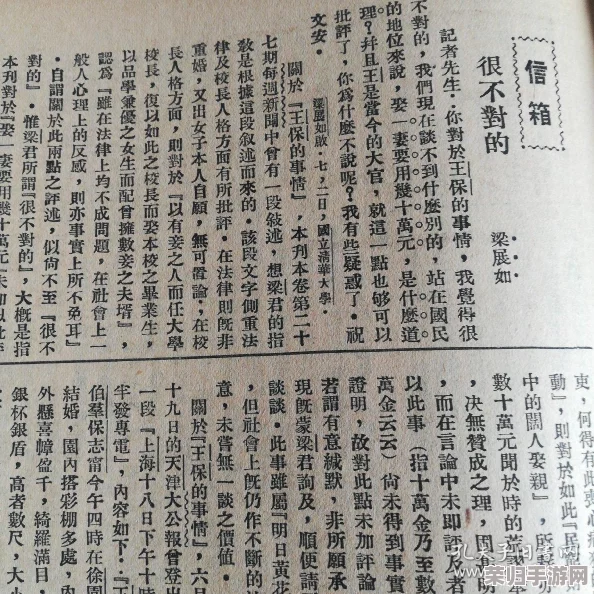 信箱
很不對的
梁展如
記者先生·你對於王保的事情,我覺得很
不對的,我們現在談不到什麼別的,站在國民
的地位來說,娶一妻要用幾十萬元,是什麼道
理?并且王是當今的大官,就這一點也够可以
批評了,你爲什麼不說呢?我有些疑惑了·祝
文安·
梁展如啟·七,二日,國立清華大學·
關於『王保的事情』,本刊本卷第二十
七期每週新聞中曾有一段敘述,想梁君的指
教是根據這段敘述而來的·該段文字側重法
律及校長人格方面有所批評·在法律則旣非
重婚,又出女子本人自願,無可置論,在校
長人格方面,則對於『以有妾之人而任大學
校長,復以如此之校長而娶本校之畢業生,
以品學兼優之女生而配曾擁數妾之夫壻』,
認爲『雖在法律上均不成問題,在社會上一
般人心理上的反感,則亦事實上所不免耳』
·自謂關於此兩點之評述,似尚不至『很不
對的』·惟梁君所謂『很不對的』,大槪是指
本刊對於『娶一妻要用幾十萬元』未加以批評
東,何得有此喪心病
動』,則對於如此『民
中的闊人娶親』,所
數十萬元聞於時的
,決無贊成之理,固
,而在言論中未即評及者
以此事(指十萬金乃至數
萬金云云)尙未得到事實
證明,故對此點未加評論
若謂有意緘默,非所願承
現旣蒙梁君詢及,順便請
談談·此事雖屬『明日黃花
,但社會上旣仍作不斷的
意,未嘗無一談之價値·
關於『王保的事情』,六月
十九日的天津大公報曾登出
一段『上海十八日下午十時
半發專電』,內容如下·『王
伯羣保志甯今午四時在徐園
結婚,園內搭彩棚多處,內
外懸喜幛盈千,綺羅滿目,
銀杯銀盾,高者數尺,大小
孔夫子旧书网
荣归手游网